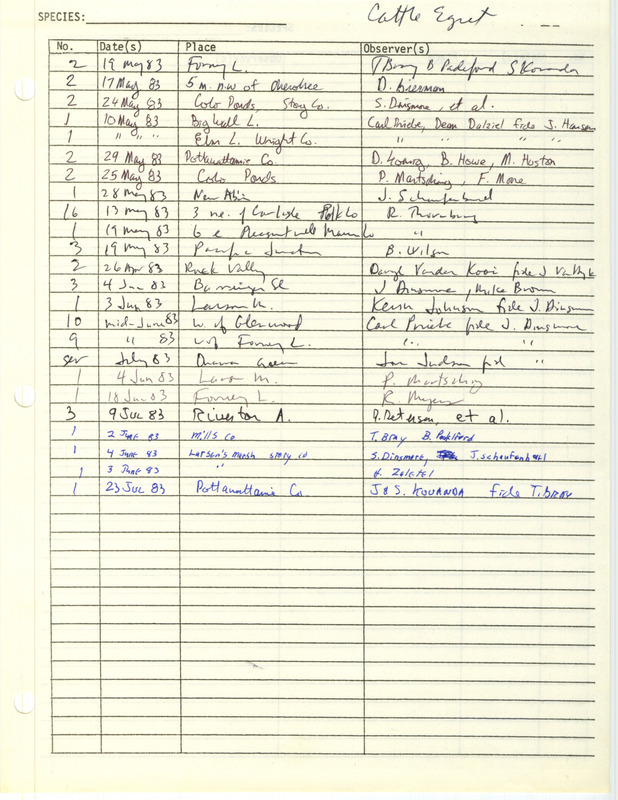 SPECIES: Cattle Egret
No. Date(s) Place Observer(s)
2 19 May 83 Forney L. T Bray B Padelford S Kovanda
2 17 May 83 5 m. n.w of Cherokee D. Bierman
2 24 May 83 Colo Ponds, Story Co. S. Dinsmore, et al.
1 10 May 83 Big Wall L. Carl Priebe, Dean Dalziel fide J. Hansen
1 " " " Elm L. Wright Co. " " " "
2 29 May 83 Pottawattamie Co. D. B. Howe, M. Huston
2 25 May 83 Colo Ponds P. Martsching, F. Moore
1 28 May 83 New Albin J. Schaufenbuel
16 13 May 83 3 ne. of Carlisle Polk Co R. Thornburg
1 19 May 83 6 e Pleasantville Marion Co "
3 19 May 83 Pacific Junction B. Wilson
2 26 Apr 83 Rock Valley Daryl Vander Kooi fide J Van Dyk
3 4 Jun 83 Barringer Sl J Dinsmore, Mike Brown
1 3 Jun 83 Larson M. Kevin Johnson fide J. Dinsmore
10 mid-June 83 w. of Glenwood Carl Priebe fide J. Dinsmore
9 " 83 w of Forney L. " "
sev July 83 Green Jon Judson fide "
1 4 Jun 83 Larson M. P. Martsching
1 18 Jun 83 Forney L. R. Myers
3 9 Jul 83 Riverton A. P. Peterson, et al.
1 2 June 83 Mills Co T. Bray B. Padelford
1 4 June 83 Larsen's marsh story co S. Dinsmore, J. Schaufenbuel
1 3 June 83 " H. Zaletel
1 23 Jul 83 Pottawattamie Co. J & S. Kovanda fide T. Bray